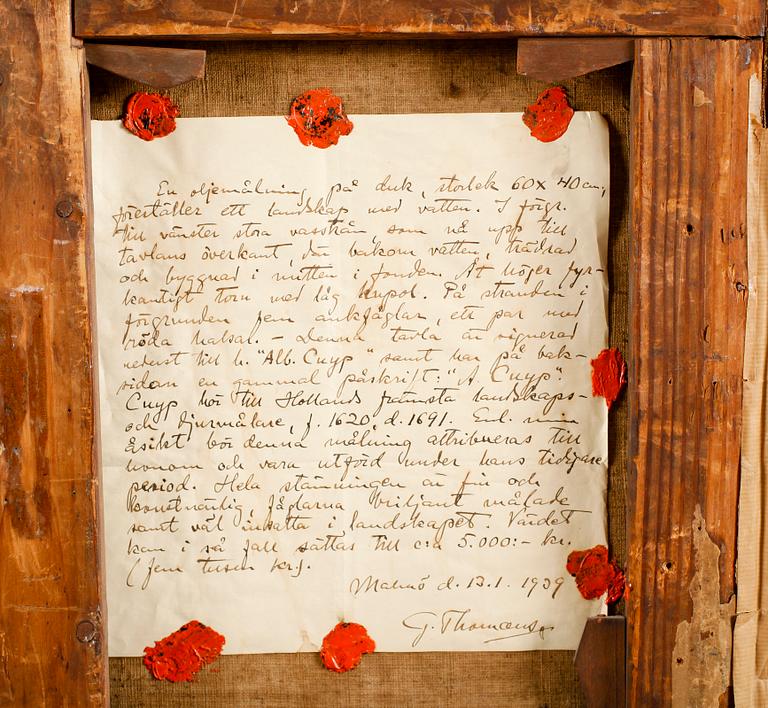 En oljemålning på duk, storlek 60 x 40 cm,
föreställer ett landskap med vatten. I förgr.
till vänster stora vasstrån, som nå upp till
tavlans överkant, där bakom vatten, trädrad
och byggnad i mitten i fonden. At höger fyr-
kantigt torn med låg kupol. På stranden i
förgrunden fem ankfåglar, ett par med
röda halsar. – Denna tavla är signerad
nederst till h. "Alb. Cuyp" samt har på bak-
sidan en gammal påskrift: "A. Cuyp".
Cuyp hör till Hollands främsta landskaps-
och djurmålare, f. 1620, d. 1691. Enl. min
åsikt bör denna målning attribueras till
honom och vara utförd under hans tidigare
period. Hela stämningen är fin och
konstnärlig, fåglarna briljant målade
samt väl insatta i landskapet. Värdet
kan i så fall sättas till c:a 5.000:- kr.
(fem tusen kr).
Malmö d. 13.1. 1939
G. Thomæus